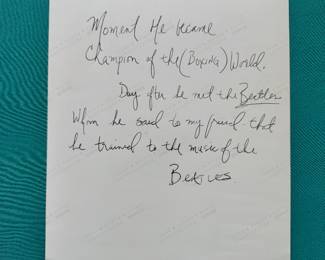 Moment He became
Champion of the (Boxing) World.
Day after he met the Beatles
Whom he said to my friend that
he trained to the music of the
Beatles